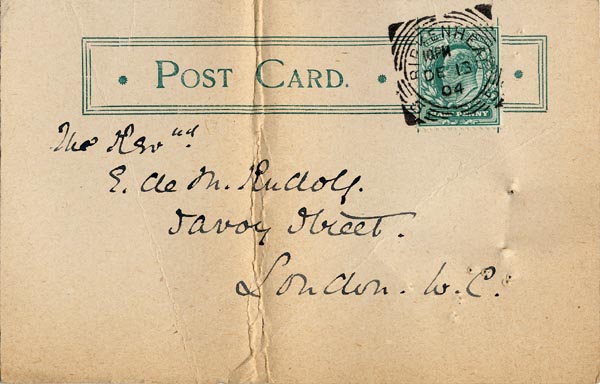 POST CARD.
BIRKENHEAD
10 PM
DE 13
04
HALF PENNY
The Revd
E. de M. Rudolf.
Savoy Street.
London. W.C.